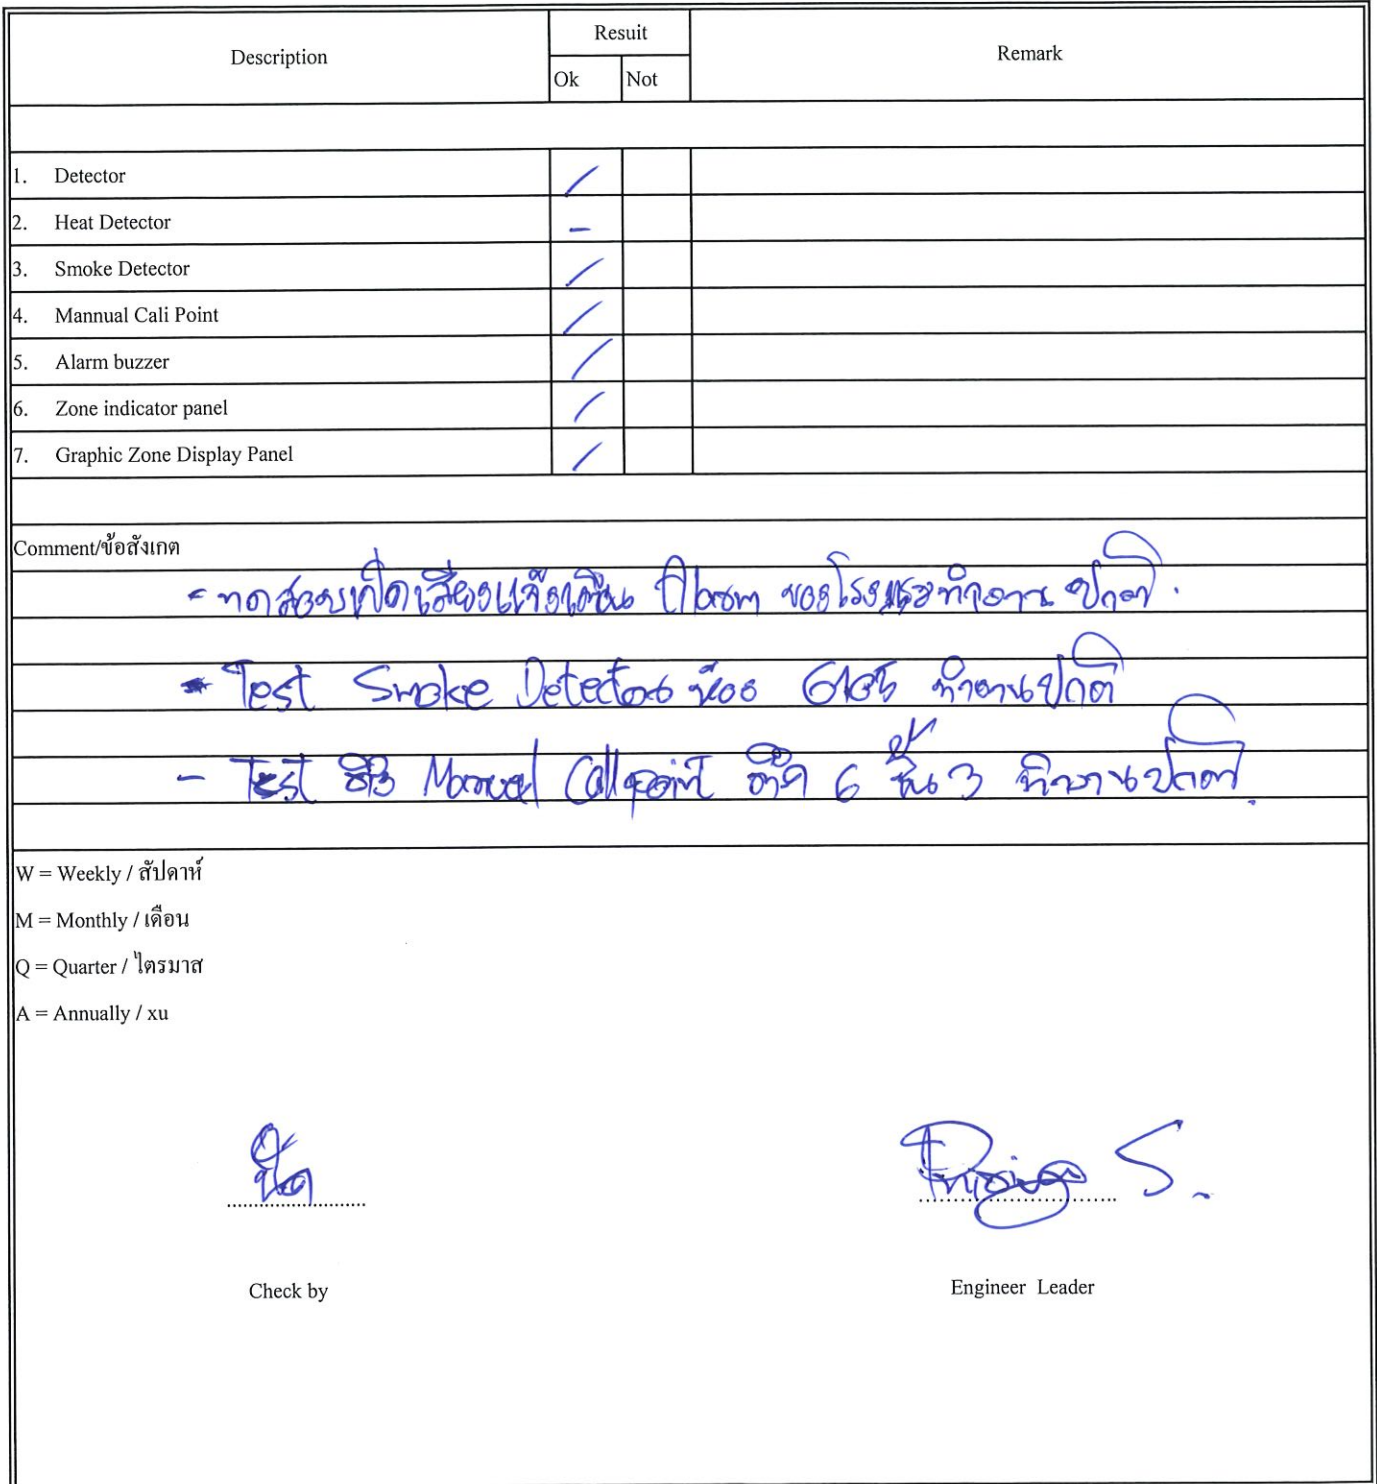 Description Resuit Remark
Ok Not
1. Detector /
2. Heat Detector -
3. Smoke Detector /
4. Mannual Cali Point /
5. Alarm buzzer /
6. Zone indicator panel /
7. Graphic Zone Display Panel /
Comment/ข้อสังเกต
- ทดสอบเปิดเสียงแจ้งเตือน Alarm ของโรงแรมทำงาน ปกติ.
- Test Smoke Detector ห้อง ทำงานปกติ
- Test Manual Call point ตึก 6 ชั้น 3 ทำงานปกติ.
W = Weekly / สัปดาห์
M = Monthly / เดือน
Q = Quarter / ไตรมาส
A = Annually / xu
S.
Check by Engineer Leader